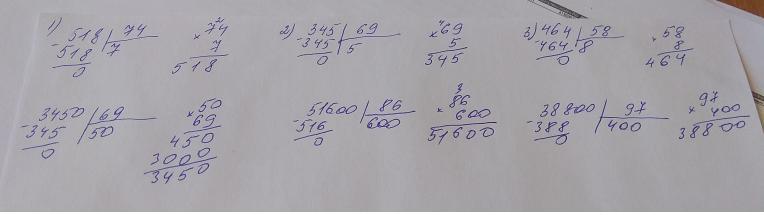 1) 518 | 74
-518 7
0
2
×74
7
518
2) 345 | 69
-345 5
0
4
×69
5
345
3) 464 | 58
-464 8
0
×58
8
464
3450 | 69
-345 50
0
×50
69
450
3000
3450
51600 | 86
-516 600
0
3
×86
600
51600
38800 | 97
-388 400
0
×97
400
38800